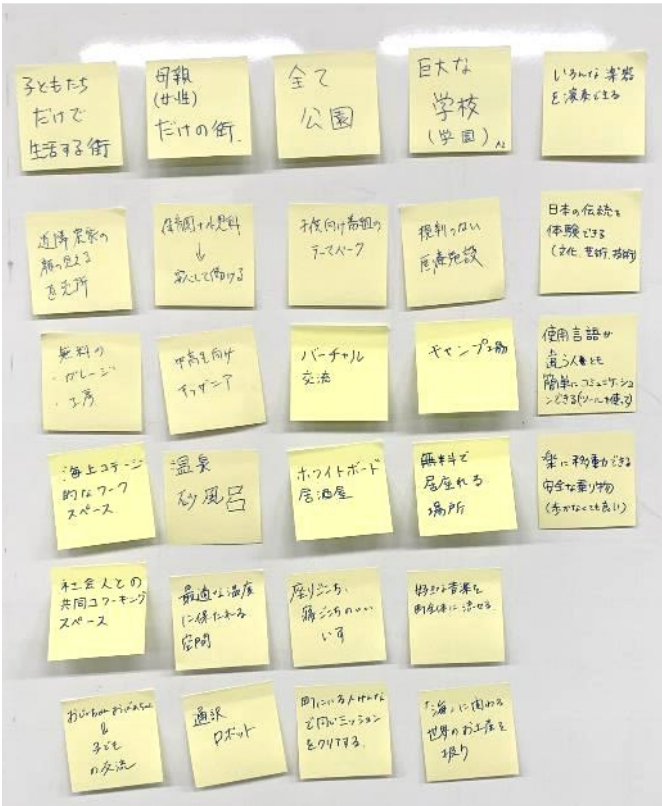 子どもたち
だけで
生活する街
母親
(女性)
だけの街
全て
公園
巨大な
学校
(学園)
いろんな楽器
を演奏できる
近隣農家の
顔の見える
直売所
保育園オール無料
↓
安心して働ける
子供向け番組の
テーマパーク
規制のない
医療施設
日本の伝統を
体験できる
(文化、芸術、技術)
無料の
・ガレージ
・工房
中高生向け
キッザニア
バーチャル
交流
キャンプ場
使用言語が
違う人とも
簡単にコミュニケーショ
ンできる(ツールを使って)
海上コテージ
的なワーク
スペース
温泉
砂風呂
ホワイトボード
居酒屋
無料で
居座れる
場所
楽に移動できる
安全な乗り物
(歩かなくても良い)
社会人との
共同コワーキング
スペース
最適な温度
に保たれる
空間
座りごこち、
寝ごこちのいい
いす
好きな音楽を
町全体に流せる
おじいちゃんおばあちゃん
&
子ども
の交流
通訳
ロボット
町にいる人みんな
で同じミッション
をクリアする
「海」に関わる
世界のお土産を
扱う